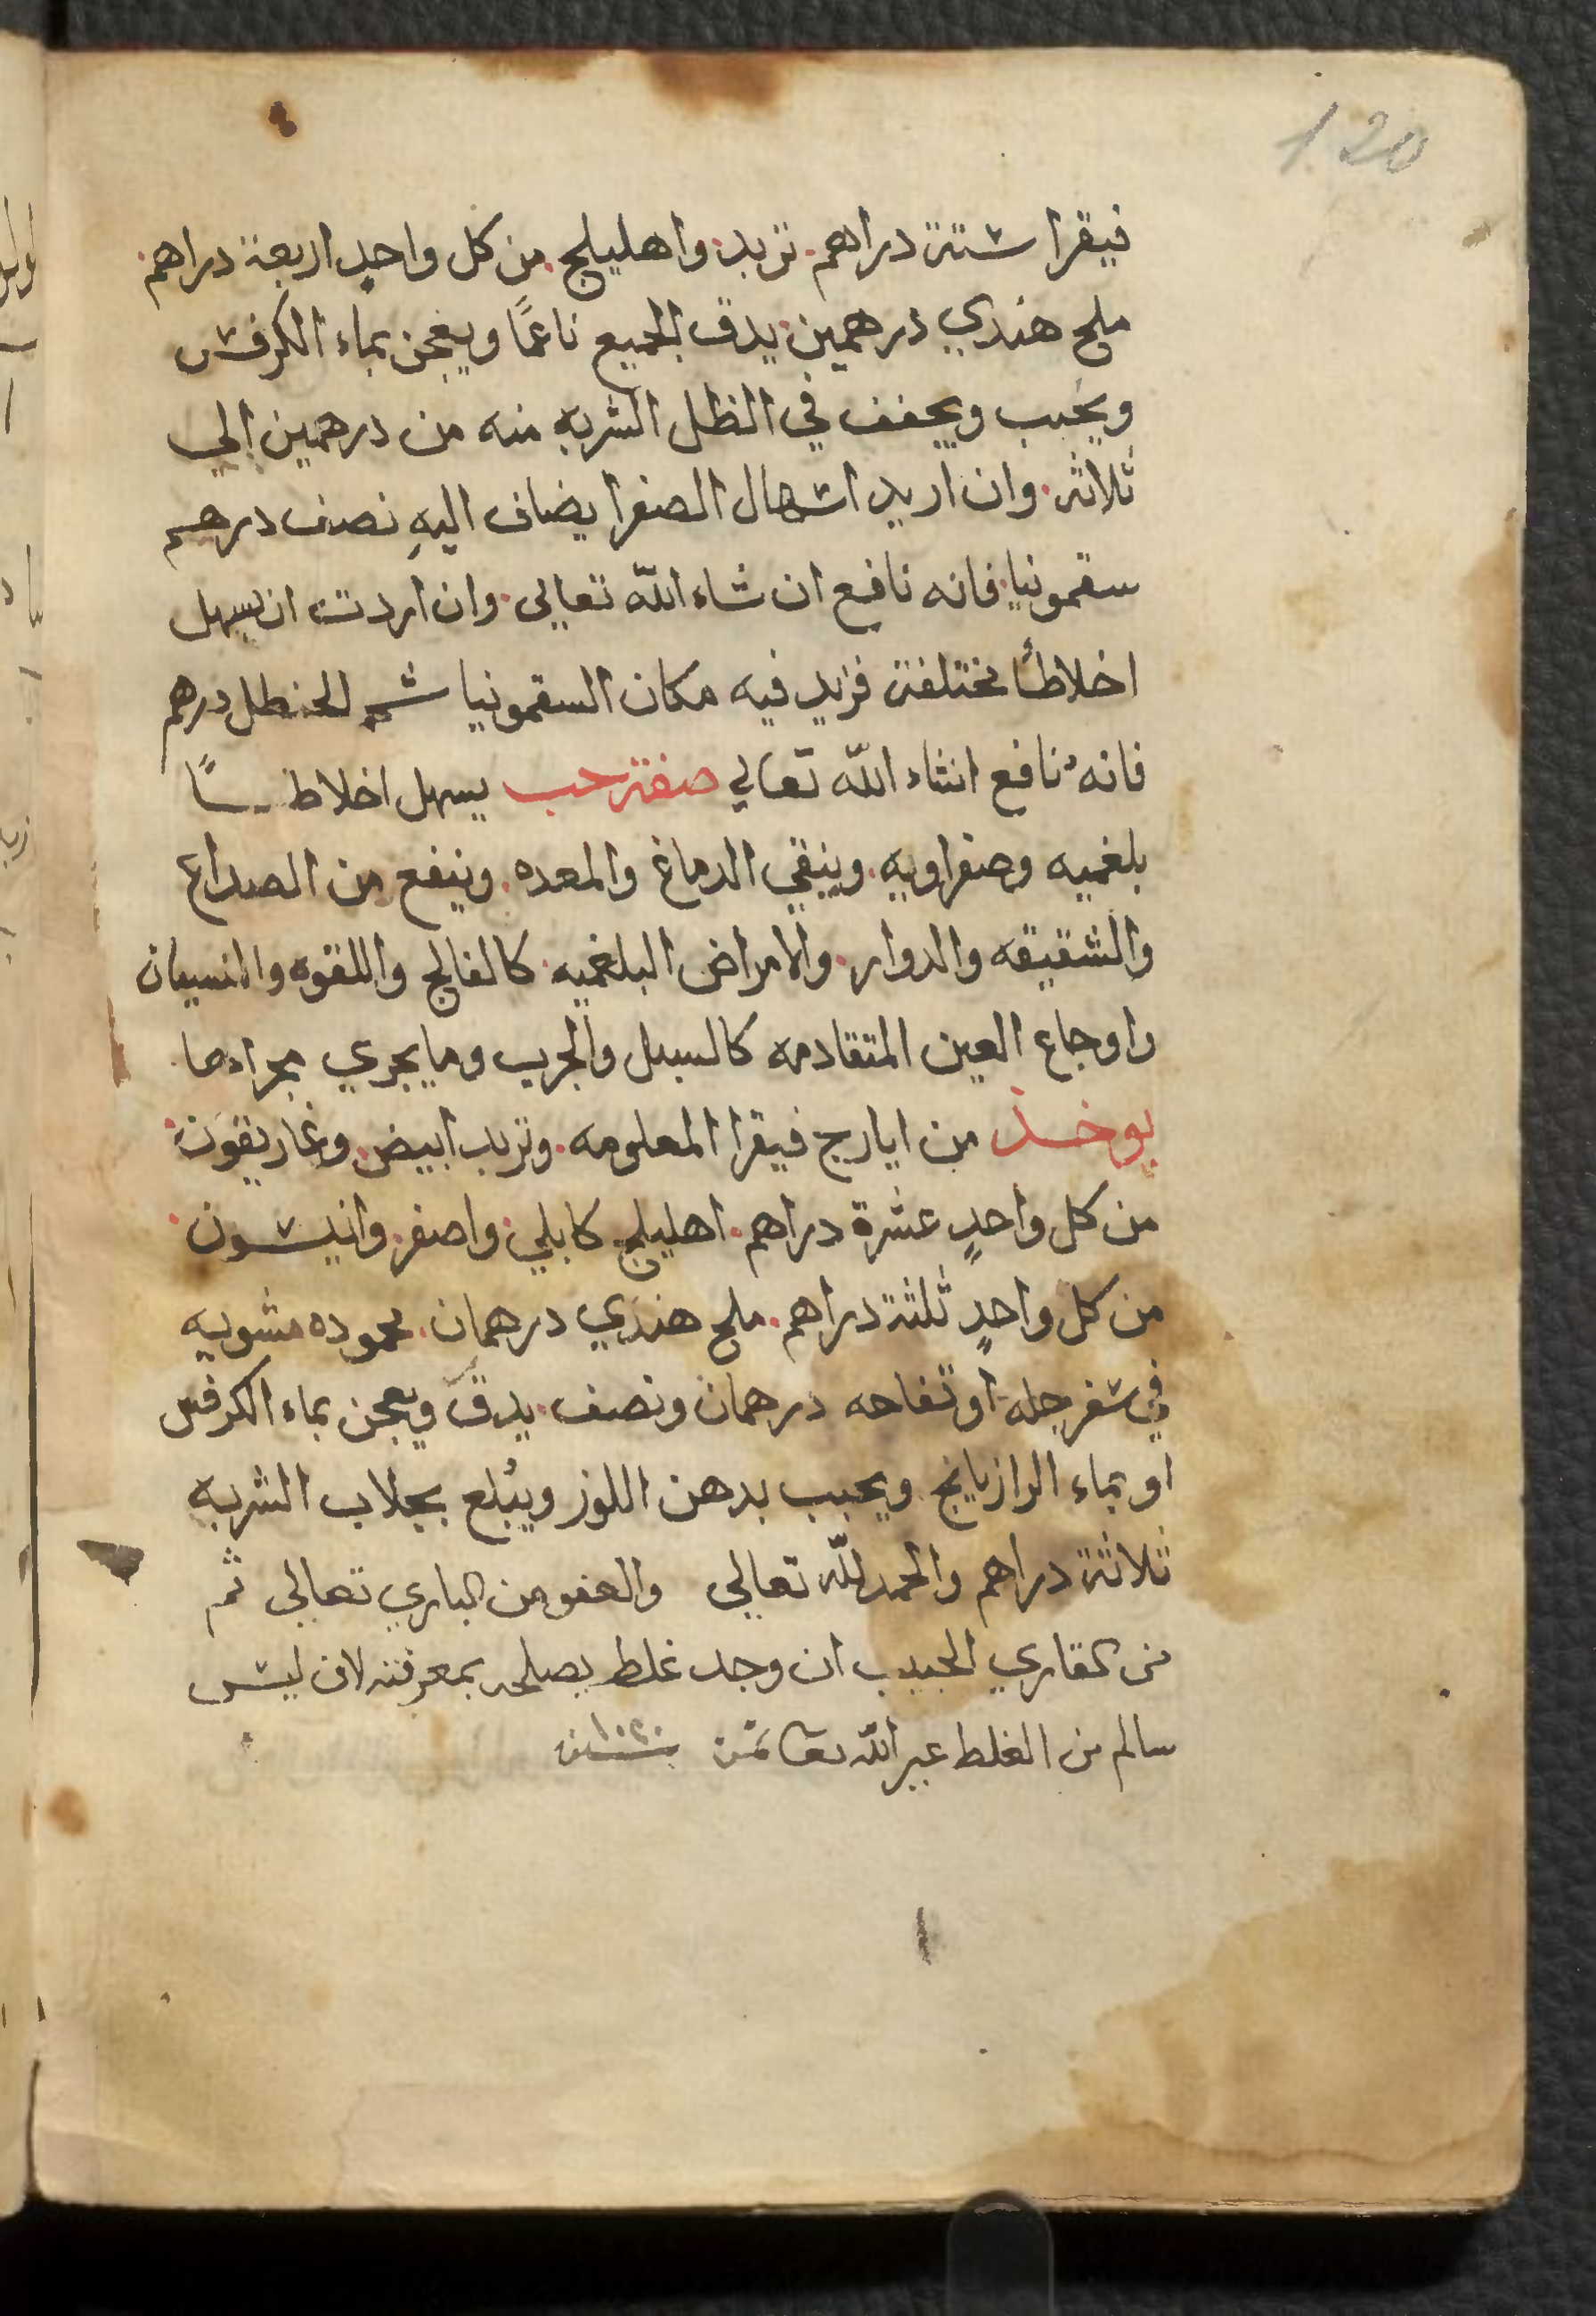 120
فيقرا ستة دراهم. تربد. واهليلج. من كل واحدٍ اربعة دراهم.
ملح هندي درهمين. يدق الجميع ناعمًا ويعجن بماء الكرفس
ويحبب ويجفف في الظل الشربه منه من درهمين الي
ثلاثه. وان اريد اسهال الصفرا يضاف اليهِ نصف درهم
سقمونيا. فانه نافع ان شاء اللّه تعالي. وان اردت ان يسهل
اخلاطًا مختلفة فزيد فيه مكان السقمونيا شحم الحنظل درهم
فانهُ نافع انشاء اللّه تعالي صفة حب يسهل اخلاطـًا
بلغميه وصفراويه. وينقي الدماغ والمعده. وينفع من الصداع
والشقيقه والدوار. والامراض البلغميه. كالفالج واللقوه والنسيان
واوجاع العين المتقادمه كالسبل والجرب وما يجري مجراهما.
يوخذ من ايارج فيقرا المعلومه. وتربد ابيض. وغاريقون.
من كل واحدٍ عشرة دراهم. اهليلج كابلي. واصفر. وانيسون.
من كل واحدٍ ثلثة دراهم. ملح هندي درهمان. محموده مشويه
في سفرجله او تفاحه درهمان ونصف. يدقّ ويعجن بماء الكرفس
او بماء الرازيانج. ويحبب بدهن اللوز ويُبلع بجلاب الشربه
ثلاثة دراهم والحمد للّه تعالي والعفو من الباري تعالي ثم
من القاري الحبيب ان وجد غلط يصلحه بمعرفته لان ليس
سالم من الغلط غير اللّه تعا تمّت سنة